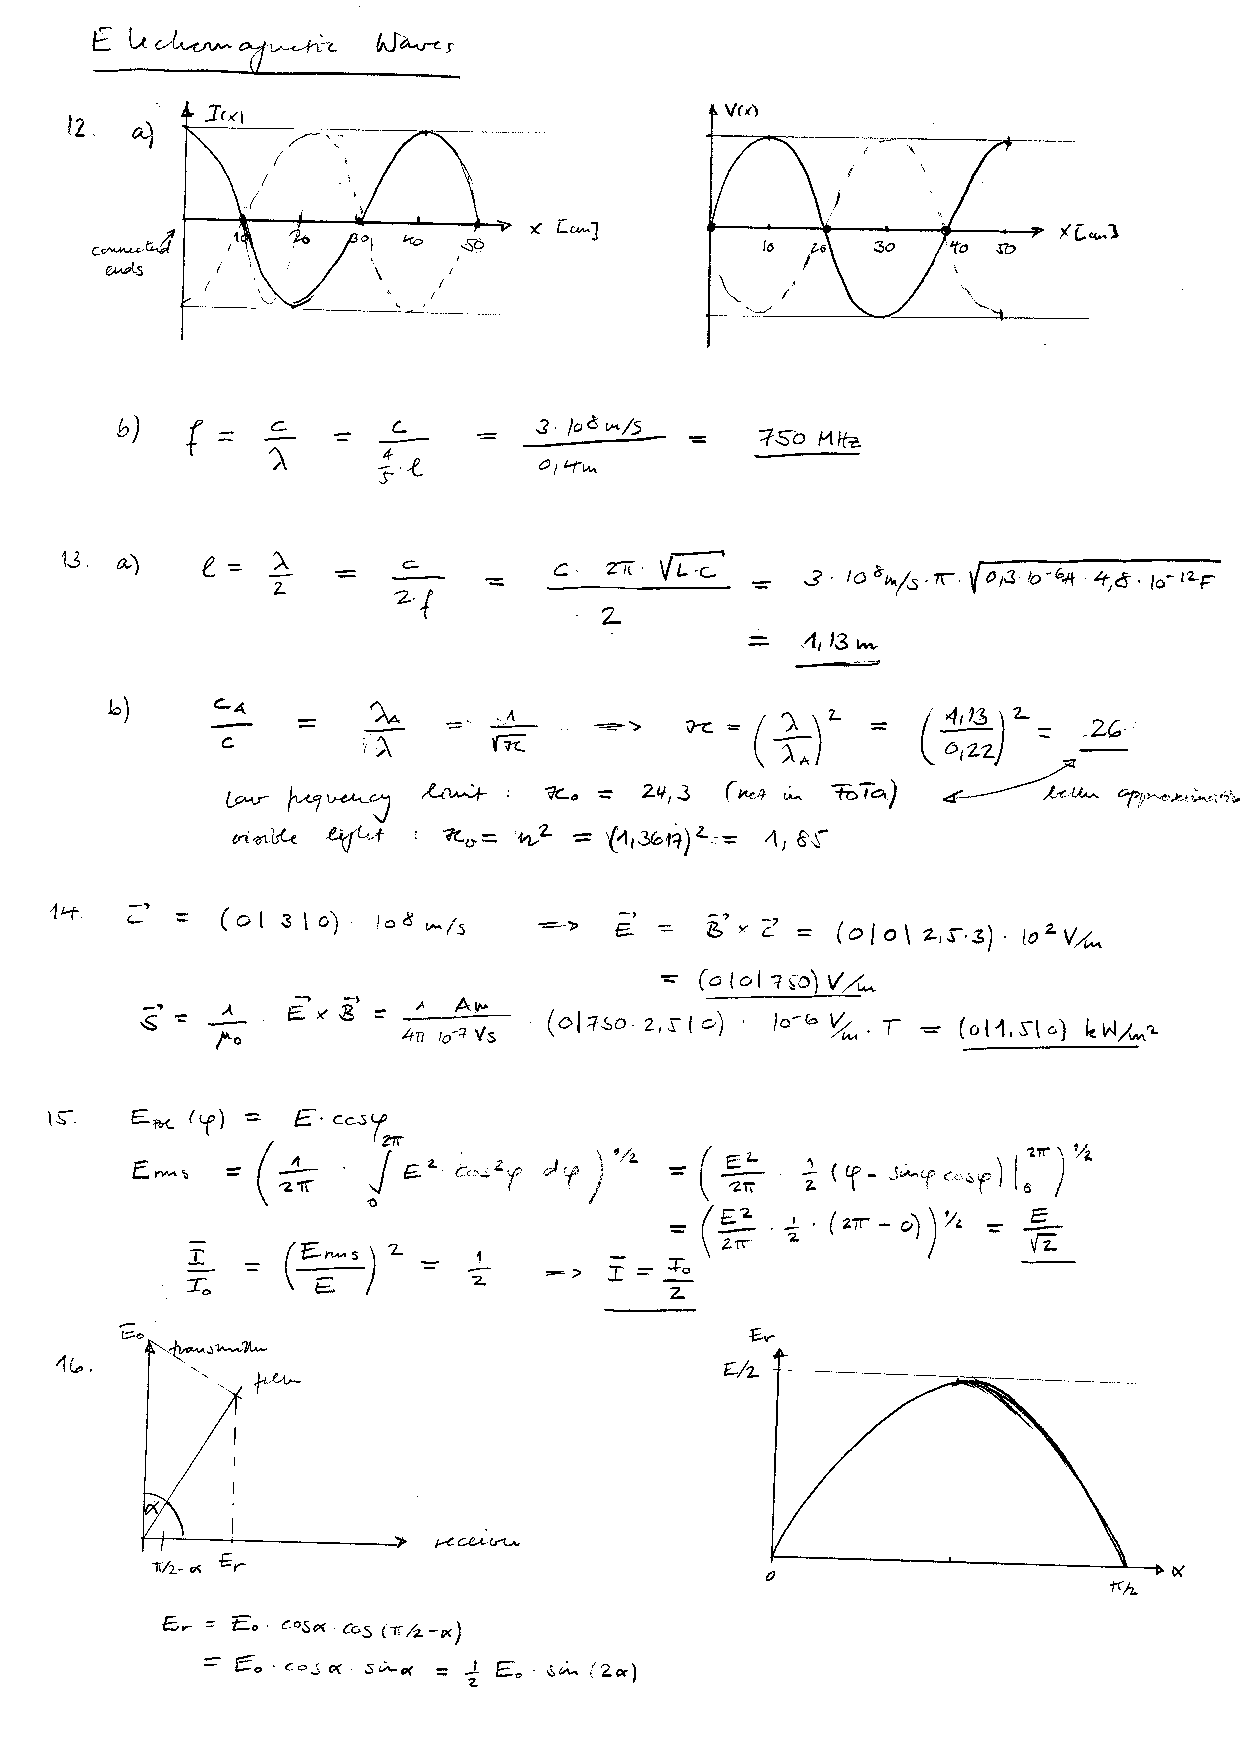 Electromagnetic Waves
12. a) I(x) V(x)
x [cm] x [cm]
10 20 30 40 50 10 20 30 40 50
connected
ends
b) f = c/λ = c/(4/5 · l) = 3·10⁸ m/s / 0,4m = 750 MHz
13. a) l = λ/2 = c/(2·f) = c · 2π · √(L·C) / 2 = 3 · 10⁸ m/s · π · √(0,3·10⁻⁶H · 4,8 · 10⁻¹²F)
= 1,13 m
b) c_A/c = λ_A/λ = 1/√ϰ => ϰ = (λ/λ_A)² = (1,13/0,22)² = 26
low frequency limit : ϰ₀ = 24,3 (not in FoTa) better approximation
visible light : ϰ₀ = n² = (1,3617)² = 1,85
14. c⃗ = (0|3|0) · 10⁸ m/s => E⃗ = B⃗ × c⃗ = (0|0|2,5·3) · 10² V/m
= (0|0|750) V/m
S⃗ = 1/μ₀ · E⃗ × B⃗ = 1 Am / 4π 10⁻⁷ Vs · (0|750·2,5|0) · 10⁻⁶ V/m · T = (0|1,5|0) kW/m²
15. (φ) = E · cosφ
Erms = (1/2π · ∫₀^2π E² · cos²φ dφ)^1/2 = (E²/2π · 1/2 (φ - sinφ cosφ)|₀^2π)^1/2
= (E²/2π · 1/2 · (2π - 0))^1/2 = E/√2
Ī/I₀ = (Erms/E)² = 1/2 -> Ī = I₀/2
16. E₀ transmitter Er
filter E/2
α
π/2-α Er receiver 0 π/2 α
Er = E₀ · cosα · cos(π/2-α)
= E₀ · cosα · sinα = 1/2 E₀ · sin(2α)